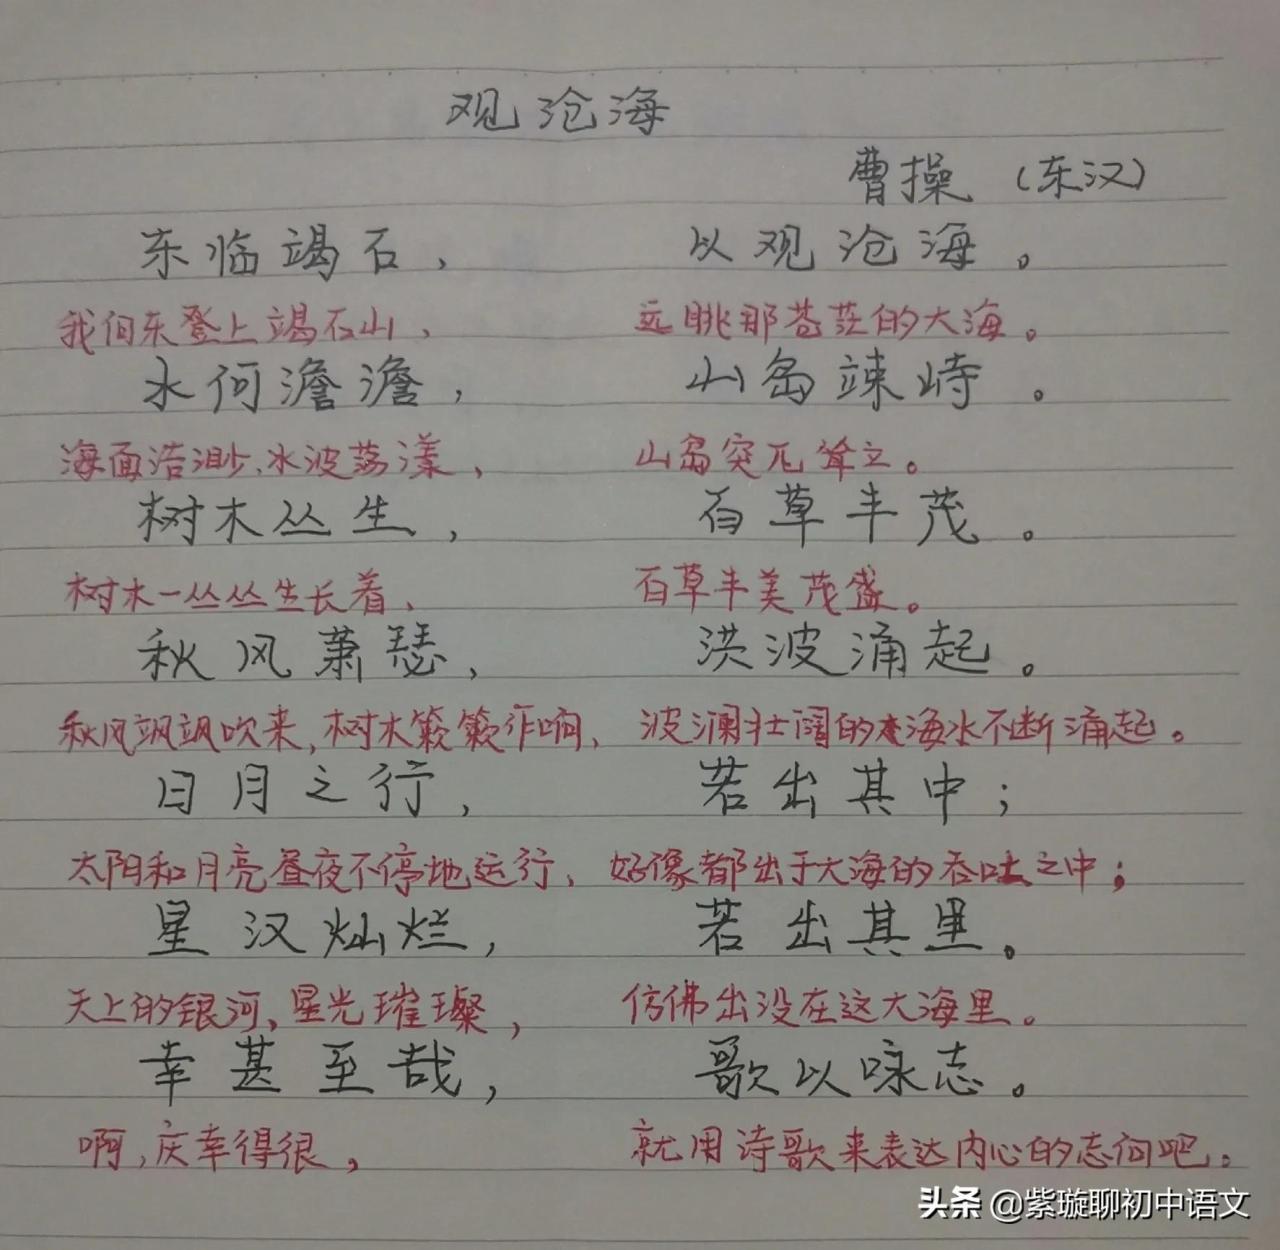 观沧海
曹操 (东汉)
东临竭石, 以观沧海。
我们东登上竭石山, 远眺那苍茫的大海。
水何澹澹, 山岛竦峙。
海面浩渺、水波荡漾, 山岛突兀耸立。
树木丛生, 百草丰茂。
树木一丛丛生长着, 百草丰美茂盛。
秋风萧瑟, 洪波涌起。
秋风飒飒吹来,树木簌簌作响, 波澜壮阔的海水不断涌起。
日月之行, 若出其中;
太阳和月亮昼夜不停地运行, 好像都出于大海的吞吐之中;
星汉灿烂, 若出其里。
天上的银河、星光璀璨, 仿佛出没在这大海里。
幸甚至哉, 歌以咏志。
啊,庆幸得很, 就用诗歌来表达内心的志向吧。
头条 @紫璇聊初中语文